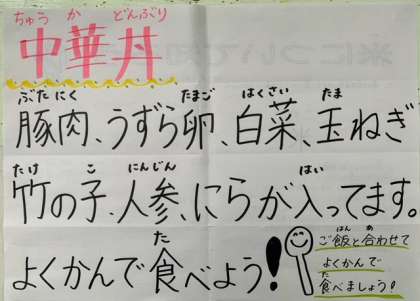 ちゅう か どんぶり
中華丼
ぶた にく たまご はくさい たま
豚肉、うずら卵、白菜、玉ねぎ
たけ こ にんじん はい
竹の子、人参、にらが入ってます。
た
よくかんで食べよう!
はん あ
ご飯と合わせて
よくかんで
た
食べましょう!